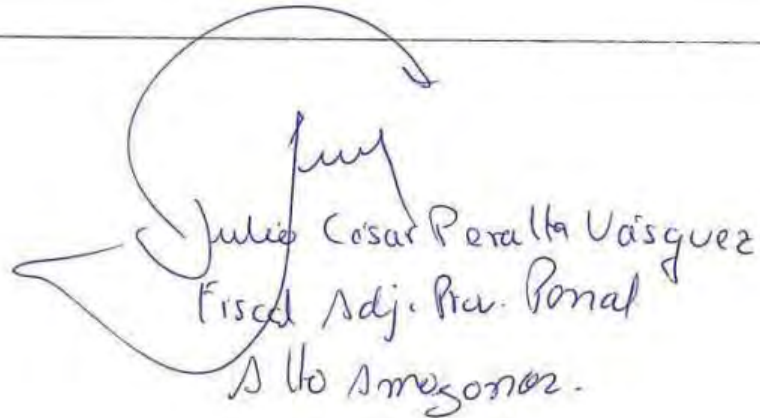 Julio César Peralta Vásquez
Fiscal Adj. Prov. Penal
Alto Amazonas.